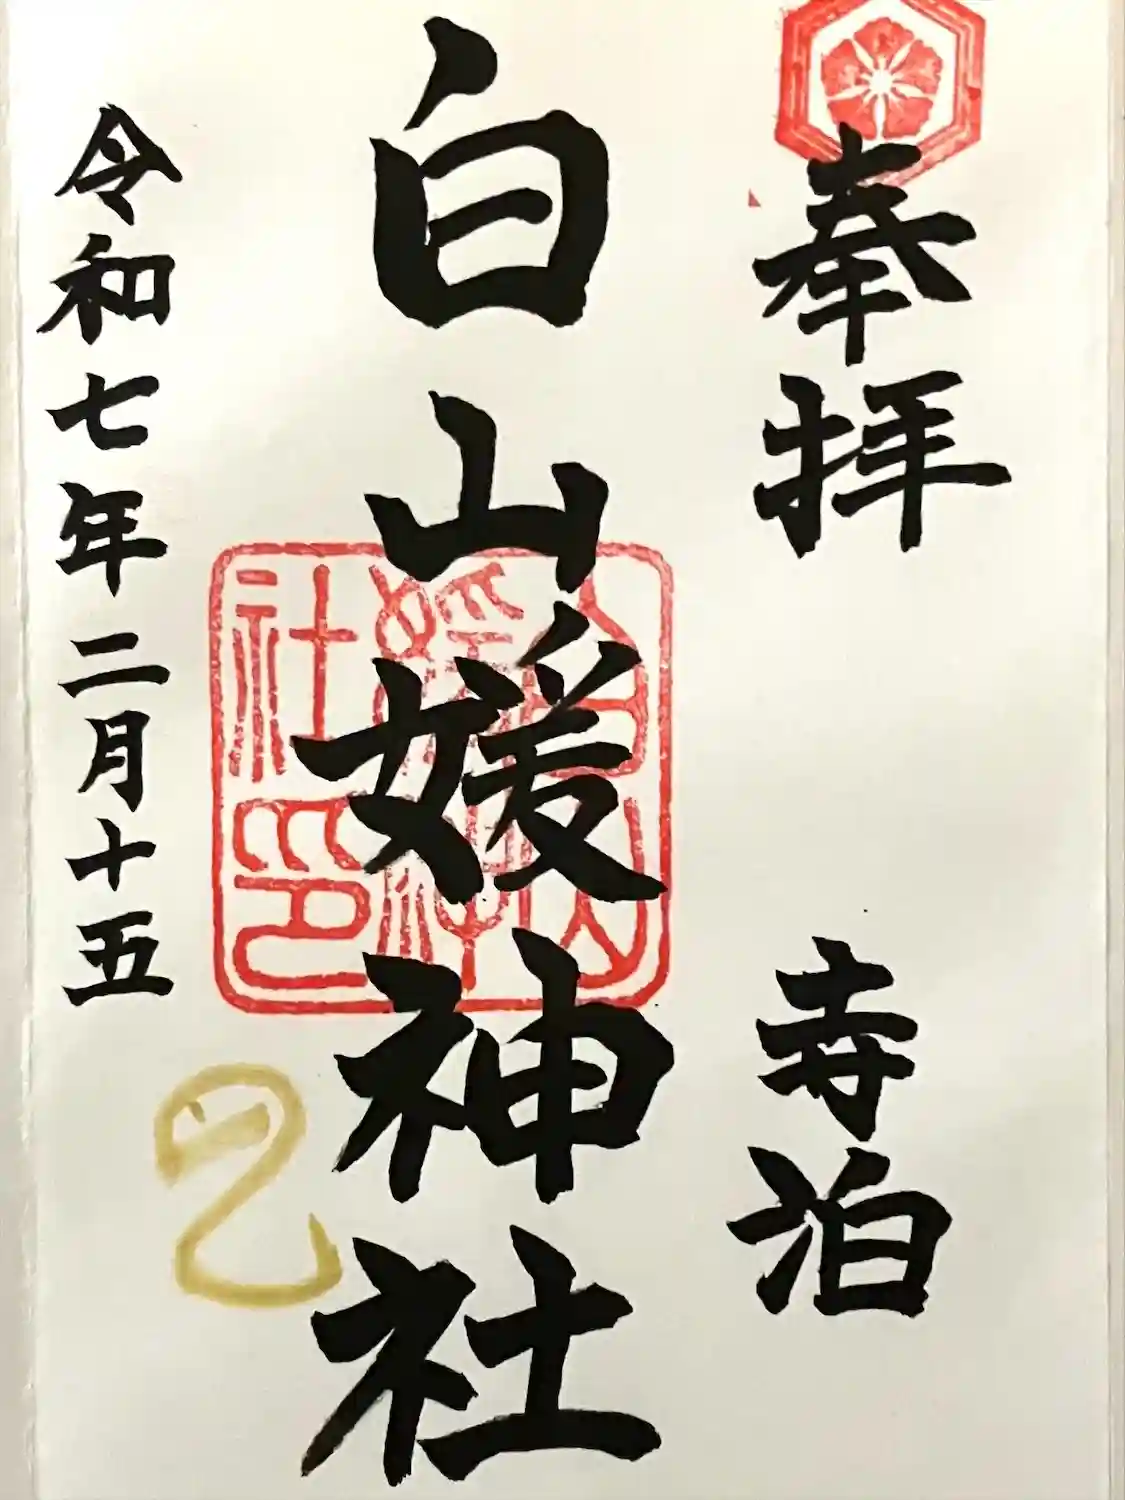 奉拝 寺泊
白山媛神社
白山媛神社印
令和七年二月十五